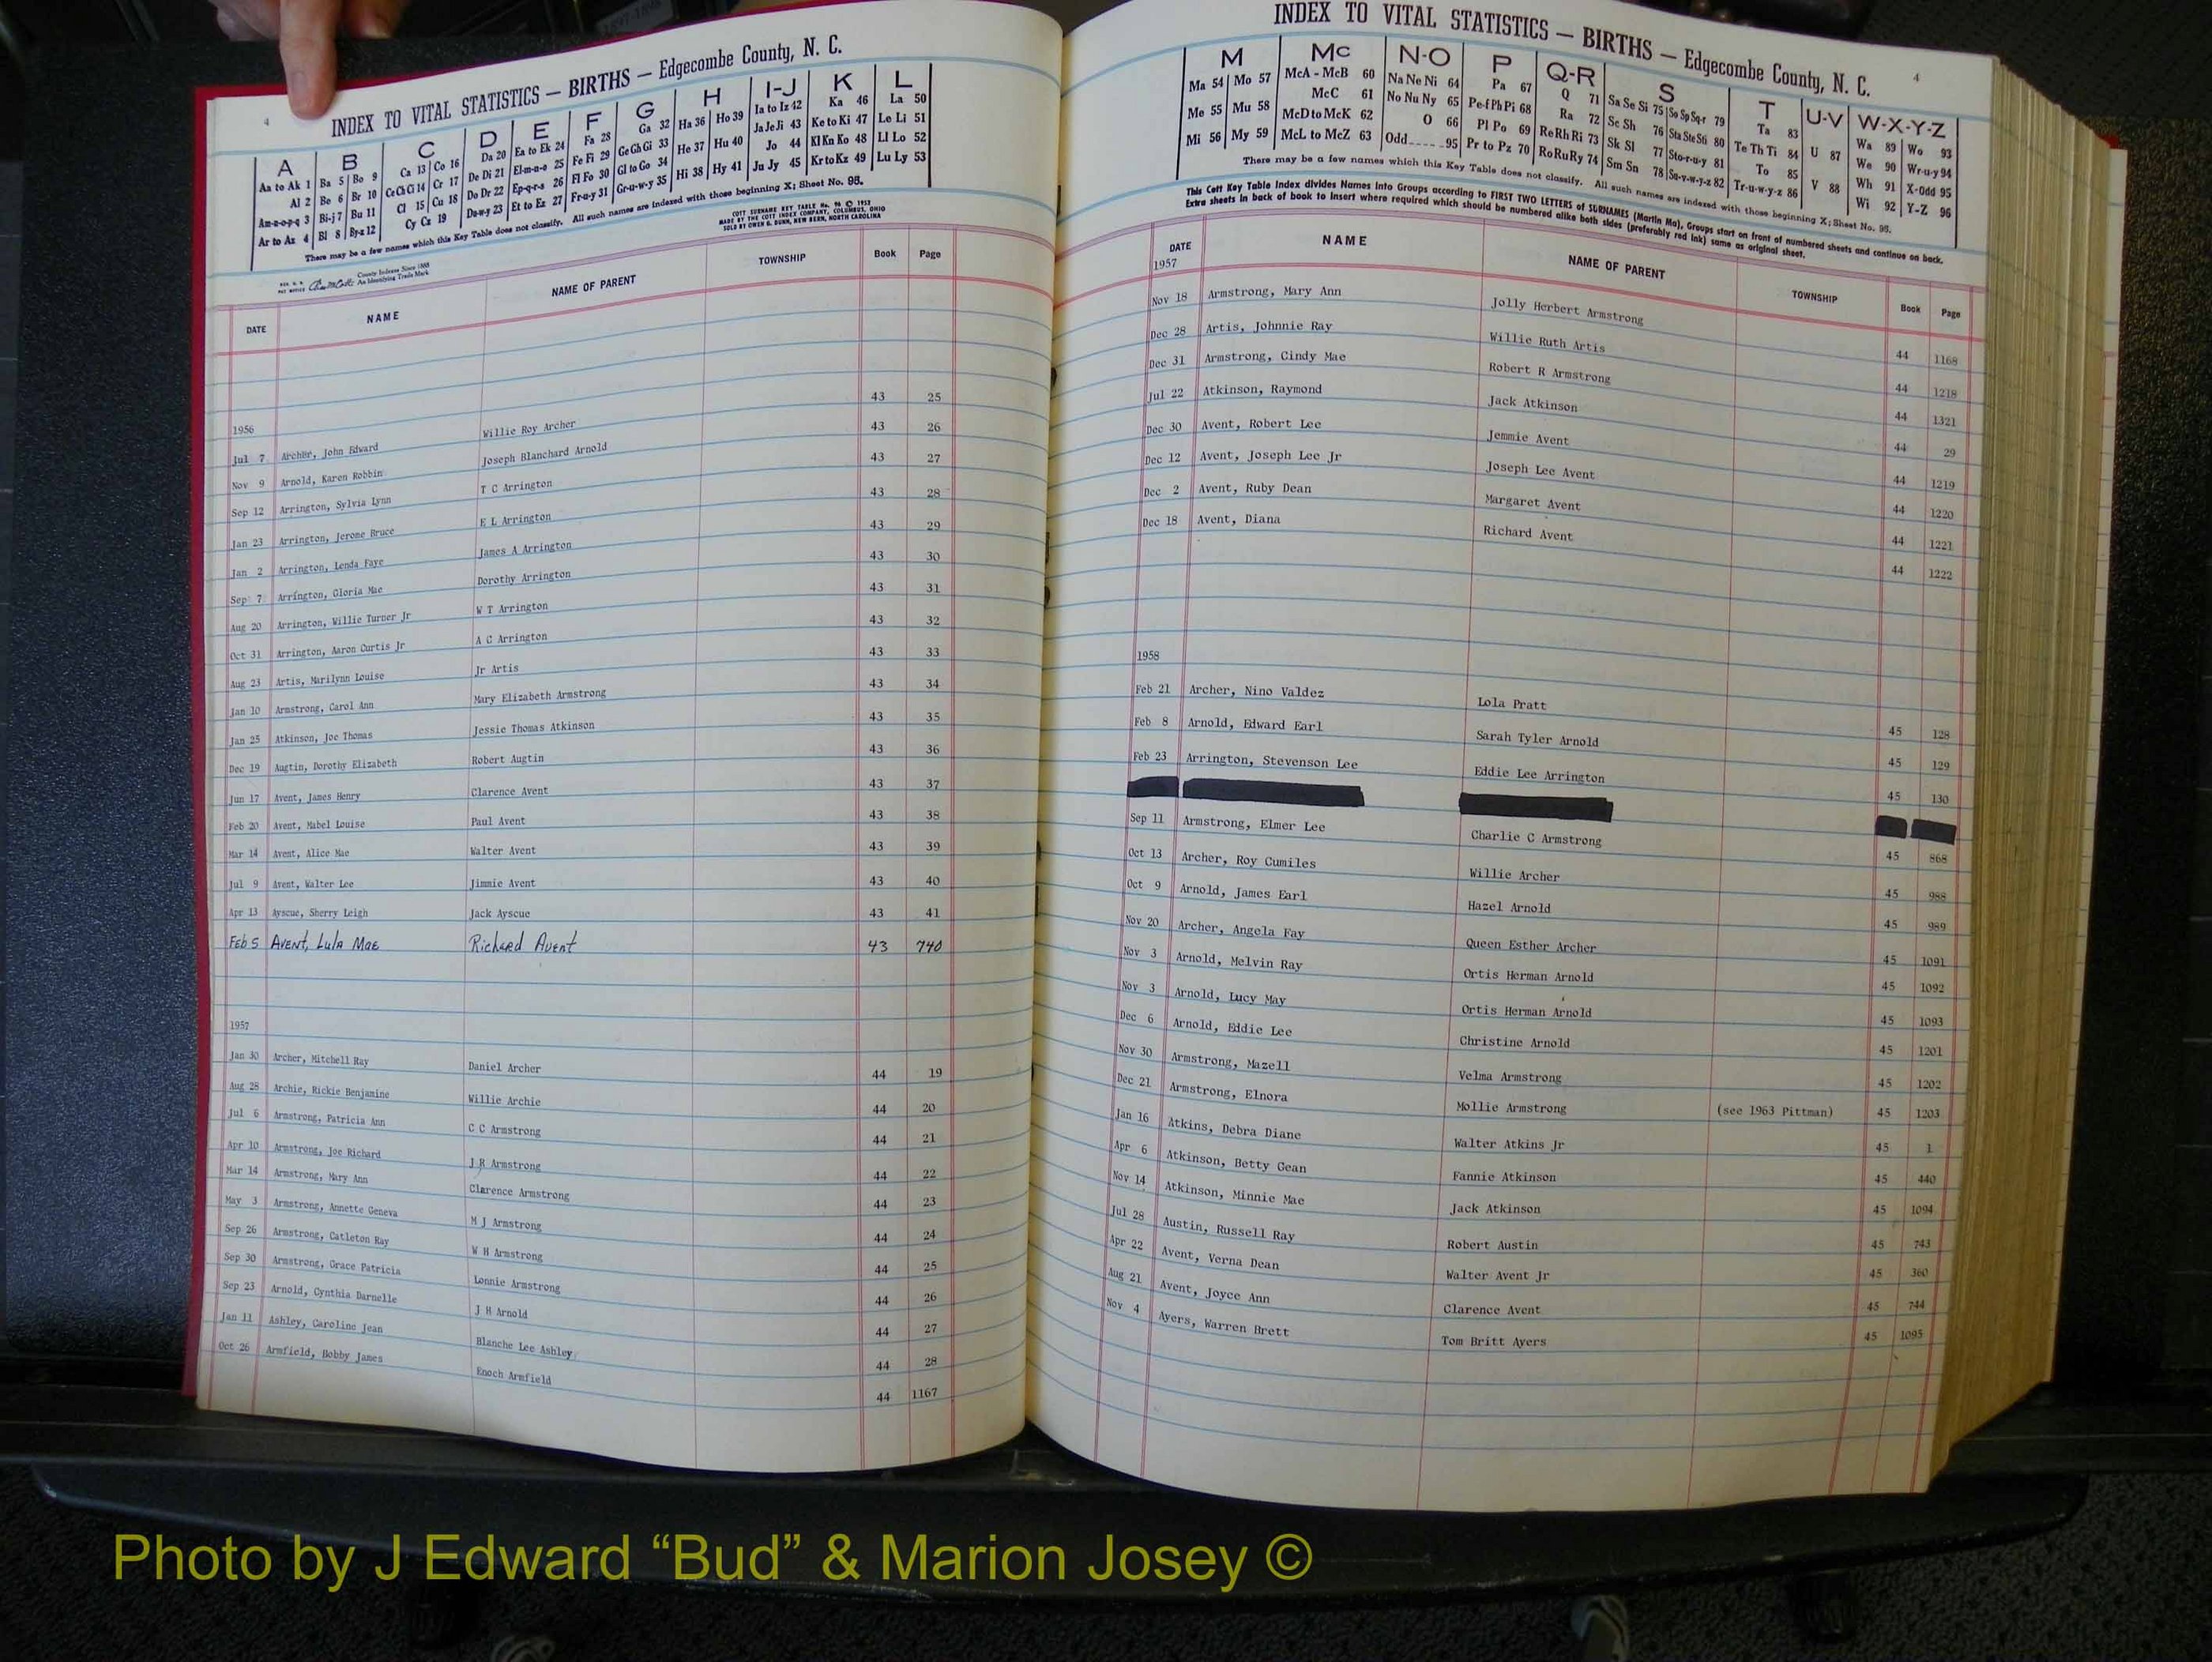 4
INDEX TO VITAL STATISTICS — BIRTHS — Edgecombe County, N. C.
A B C D E F G H I-J K L
Aa to Ak 1 Ba 5 Bo 9 Ca 13 Co 16 Da 20 Ea to Ek 24 Fa 28 Ga 32 Ha 36 Ho 39 Ia to Iz 42 Ka 46 La 50
Al 2 Be 6 Br 10 Ce Ch Ci 14 Cr 17 De Di 21 El-m-n-o 25 Fe Fi 29 Ge Gh Gi 33 He 37 Hu 40 Ja Je Ji 43 Ke to Ki 47 Le Li 51
Am-n-o-p-q 3 Bi-j 7 Bu 11 Cl 15 Cu 18 Do Dr 22 Ep-q-r-s 26 Fl Fo 30 Gl to Go 34 Hi 38 Hy 41 Jo 44 Kl Kn Ko 48 Ll Lo 52
Ar to Az 4 Bl 8 By-z 12 Cy Cz 19 Du-w-y 23 Et to Ez 27 Fr-u-y 31 Gr-u-w-y 35 Ju Jy 45 Kr to Kz 49 Lu Ly 53
There may be a few names which this Key Table does not classify. All such names are indexed with those beginning X; Sheet No. 95.
COTT SURNAME KEY TABLE No. 96 © 1953
MADE BY THE COTT INDEX COMPANY, COLUMBUS, OHIO
SOLD BY OWEN G. DUNN, NEW BERN, NORTH CAROLINA
County Indexes Since 1888
An Identifying Trade Mark
DATE NAME NAME OF PARENT TOWNSHIP Book Page
1956
Jul 7 Archer, John Edward Willie Roy Archer 43 25
Nov 9 Arnold, Karen Robbin Joseph Blanchard Arnold 43 26
Sep 12 Arrington, Sylvia Lynn T C Arrington 43 27
Jan 23 Arrington, Jerome Bruce E L Arrington 43 28
Jan 2 Arrington, Lenda Faye James A Arrington 43 29
Sep 7 Arrington, Gloria Mae Dorothy Arrington 43 30
Aug 20 Arrington, Willie Turner Jr W T Arrington 43 31
Oct 31 Arrington, Aaron Curtis Jr A C Arrington 43 32
Aug 23 Artis, Marilynn Louise Jr Artis 43 33
Jan 10 Armstrong, Carol Ann Mary Elizabeth Armstrong 43 34
Jan 25 Atkinson, Joe Thomas Jessie Thomas Atkinson 43 35
Dec 19 Augtin, Dorothy Elizabeth Robert Augtin 43 36
Jun 17 Avent, James Henry Clarence Avent 43 37
Feb 20 Avent, Mabel Louise Paul Avent 43 38
Mar 14 Avent, Alice Mae Walter Avent 43 39
Jul 9 Avent, Walter Lee Jimmie Avent 43 40
Apr 13 Ayscue, Sherry Leigh Jack Ayscue 43 41
Feb 5 Avent, Lula Mae Richard Avent 43 740
1957
Jan 30 Archer, Mitchell Ray Daniel Archer 44 19
Aug 28 Archie, Rickie Benjamine Willie Archie 44 20
Jul 6 Armstrong, Patricia Ann C C Armstrong 44 21
Apr 10 Armstrong, Joe Richard J R Armstrong 44 22
Mar 14 Armstrong, Mary Ann Clarence Armstrong 44 23
May 3 Armstrong, Annette Geneva M J Armstrong 44 24
Sep 26 Armstrong, Catleton Ray W H Armstrong 44 25
Sep 30 Armstrong, Grace Patricia Lonnie Armstrong 44 26
Sep 23 Arnold, Cynthia Darnelle J H Arnold 44 27
Jan 11 Ashley, Caroline Jean Blanche Lee Ashley 44 28
Oct 26 Armfield, Bobby James Enoch Armfield 44 1167
INDEX TO VITAL STATISTICS — BIRTHS — Edgecombe County, N. C.
4
M Mc N-O P Q-R S T U-V W-X-Y-Z
Ma 54 Mo 57 McA - McB 60 Na Ne Ni 64 Pa 67 Q 71 Sa Se Si 75 So Sp Sq-r 79 Ta 83 U 87 Wa 89 Wo 93
Me 55 Mu 58 McC 61 No Nu Ny 65 Pe-f Ph Pi 68 Ra 72 Sc Sh 76 Sta Ste Sti 80 Te Th Ti 84 V 88 We 90 Wr-u-y 94
Mi 56 My 59 McD to McK 62 O 66 Pl Po 69 Re Rh Ri 73 Sk Sl 77 Sto-r-u-y 81 To 85 Wh 91 X-Odd 95
McL to McZ 63 Odd 95 Pr to Pz 70 Ro Ru Ry 74 Sm Sn 78 Su-v-w-y-z 82 Tr-u-w-y-z 86 Wi 92 Y-Z 96
There may be a few names which this Key Table does not classify. All such names are indexed with those beginning X; Sheet No. 95.
This Cott Key Table Index divides Names into Groups according to FIRST TWO LETTERS of SURNAMES (Martin Ma), Groups start on front of numbered sheets and continue on back.
Extra sheets in back of book to insert where required which should be numbered alike both sides (preferably red ink) same as original sheet.
DATE NAME NAME OF PARENT TOWNSHIP Book Page
1957
Nov 18 Armstrong, Mary Ann Jolly Herbert Armstrong 44 1168
Dec 28 Artis, Johnnie Ray Willie Ruth Artis 44 1218
Dec 31 Armstrong, Cindy Mae Robert R Armstrong 44 1321
Jul 22 Atkinson, Raymond Jack Atkinson 44 29
Dec 30 Avent, Robert Lee Jemmie Avent 44 1219
Dec 12 Avent, Joseph Lee Jr Joseph Lee Avent 44 1220
Dec 2 Avent, Ruby Dean Margaret Avent 44 1221
Dec 18 Avent, Diana Richard Avent 44 1222
1958
Feb 21 Archer, Nino Valdez Lola Pratt 45 128
Feb 8 Arnold, Edward Earl Sarah Tyler Arnold 45 129
Feb 23 Arrington, Stevenson Lee Eddie Lee Arrington 45 130
Sep 11 Armstrong, Elmer Lee Charlie C Armstrong 45 868
Oct 13 Archer, Roy Cumiles Willie Archer 45 988
Oct 9 Arnold, James Earl Hazel Arnold 45 989
Nov 20 Archer, Angela Fay Queen Esther Archer 45 1091
Nov 3 Arnold, Melvin Ray Ortis Herman Arnold 45 1092
Nov 3 Arnold, Lucy May Ortis Herman Arnold 45 1093
Dec 6 Arnold, Eddie Lee Christine Arnold 45 1201
Nov 30 Armstrong, Mazell Velma Armstrong 45 1202
Dec 21 Armstrong, Elnora Mollie Armstrong (see 1963 Pittman) 45 1203
Jan 16 Atkins, Debra Diane Walter Atkins Jr 45 1
Apr 6 Atkinson, Betty Gean Fannie Atkinson 45 440
Nov 14 Atkinson, Minnie Mae Jack Atkinson 45 1094
Jul 28 Austin, Russell Ray Robert Austin 45 743
Apr 22 Avent, Verna Dean Walter Avent Jr 45 360
Aug 21 Avent, Joyce Ann Clarence Avent 45 744
Nov 4 Ayers, Warren Brett Tom Britt Ayers 45 1095
Photo by J Edward “Bud” & Marion Josey ©